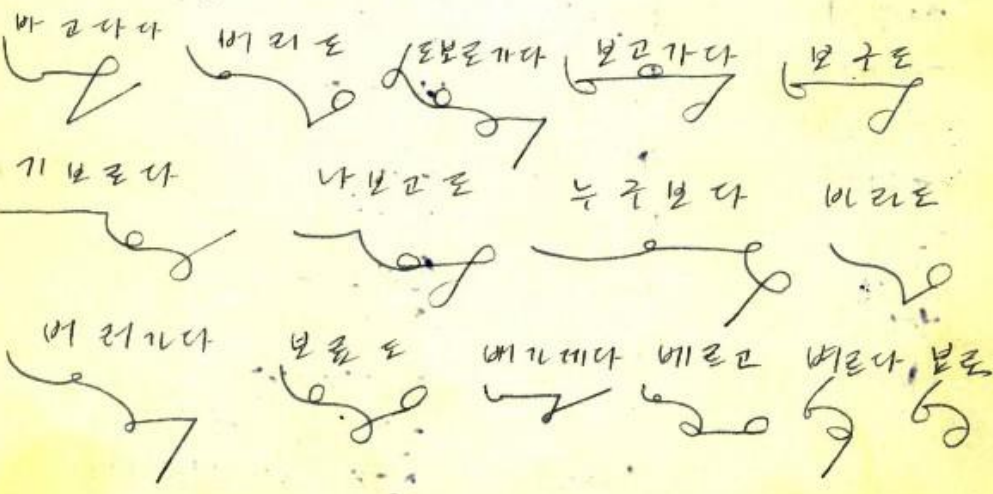 바고다다 버리도 도보로가다 보고가다 보구도
기보로다 나보고도 누구보다 바라도
버러가다 보료도 배가제다 베르고 벼르다 보로